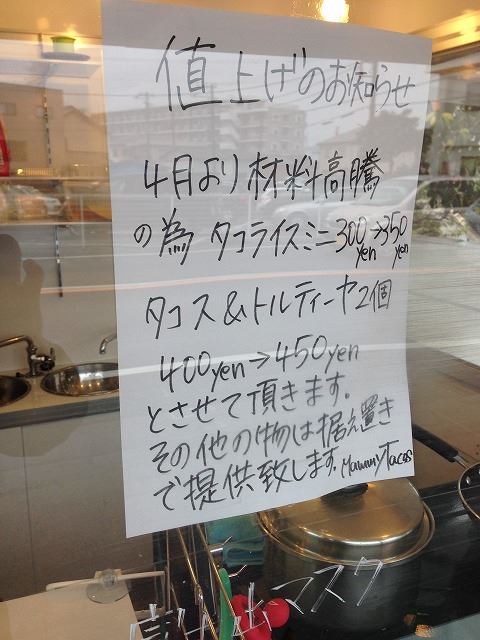 値上げのお知らせ
4月より材料高騰
の為 タコライスミニ300yen→350yen
タコス&トルティーヤ2個
400yen→450yen
とさせて頂きます。
その他の物は据え置き
で提供致します。MammyTacos